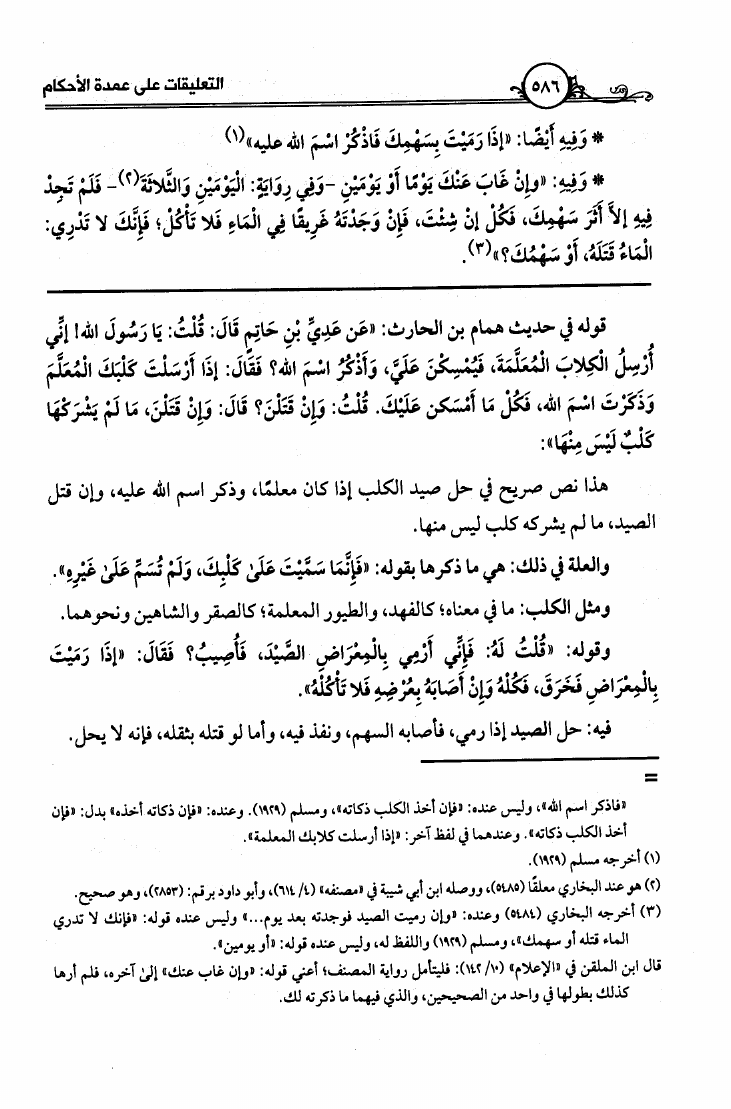 ٥٨٦
التعليقات على عمدة الأحكام
* وَفِيهِ أَيْضًا: «إِذَا رَمَيْتَ بِسَهْمِكَ فَاذْكُرْ اسْمَ الله عليه»(١)
* وَفِيهِ: «وإِنْ غَابَ عَنْكَ يَوْمًا أَوْ يَوْمَيْنِ -وَفِي رِوَايَةٍ: الْيَوْمَيْنِ وَالثَّلاثَةَ(٢)- فَلَمْ تَجِدْ
فِيهِ إلاَّ أَثَرَ سَهْمِكَ، فَكُلْ إنْ شِئْتَ، فَإِنْ وَجَدْتَهُ غَرِيقًا فِي الْمَاءِ فَلا تَأْكُلْ؛ فَإِنَّكَ لا تَدْرِي:
الْمَاءُ قَتَلَهُ، أَوْ سَهْمُكَ؟»(٣).
قوله في حديث همام بن الحارث: «عَن عَدِيِّ بْنِ حَاتِمٍ قَالَ: قُلْتُ: يَا رَسُولَ الله! إِنِّي
أُرْسِلُ الْكِلابَ الْمُعَلَّمَةَ، فَيُمْسِكْنَ عَلَيَّ، وَأَذْكُرُ اسْمَ الله؟ فَقَالَ: إِذَا أَرْسَلْتَ كَلْبَكَ الْمُعَلَّمَ
وَذَكَرْتَ اسْمَ الله، فَكُلْ مَا أَمْسَكن عَلَيْكَ. قُلْتُ: وَإِنْ قَتَلْنَ؟ قَالَ: وَإِنْ قَتَلْنَ، مَا لَمْ يَشْرَكْهَا
كَلْبٌ لَيْسَ مِنْهَا»:
هذا نص صريح في حل صيد الكلب إذا كان معلمًا، وذكر اسم الله عليه، وإن قتل
الصيد، ما لم يشركه كلب ليس منها.
والعلة في ذلك: هي ما ذكرها بقوله: «فَإِنَّمَا سَمَّيْتَ عَلَىٰ كَلْبِكَ، وَلَمْ تُسَمِّ عَلَىٰ غَيْرِهِ».
ومثل الكلب: ما في معناه؛ كالفهد، والطيور المعلمة؛ كالصقر والشاهين ونحوهما.
وقوله: «قُلْتُ لَهُ: فَإِنِّي أَرْمِي بِالْمِعْرَاضِ الصَّيْدَ، فَأُصِيبُ؟ فَقَالَ: «إِذَا رَمَيْتَ
بِالْمِعْرَاضِ فَخَرَقَ، فَكُلْهُ وَإِنْ أَصَابَهُ بِعَرْضِهِ فَلا تَأْكُلْهُ».
فيه: حل الصيد إذا رمي، فأصابه السهم، ونفذ فيه، وأما لو قتله بثقله، فإنه لا يحل.
=
«فاذكر اسم الله»، وليس عنده: «فإن أخذ الكلب ذكاته»، ومسلم (١٩٢٩). وعنده: «فإن ذكاته أخذه» بدل: «فإن
أخذ الكلب ذكاته». وعندهما في لفظ آخر: «إذا أرسلت كلابك المعلمة».
(١) أخرجه مسلم (١٩٢٩).
(٢) هو عند البخاري معلقًا (٥٤٨٥)، ووصله ابن أبي شيبة في «مصنفه» (٤/ ٦١٤)، وأبو داود برقم: (٢٨٥٣)، وهو صحيح.
(٣) أخرجه البخاري (٥٤٨٤) وعنده: «وإن رميت الصيد فوجدته بعد يوم...» وليس عنده قوله: «فإنك لا تدري
الماء قتله أو سهمك»، ومسلم (١٩٢٩) واللفظ له، وليس عنده قوله: «أو يومين».
قال ابن الملقن في «الإعلام» (١٠/ ١٤٢): فليتأمل رواية المصنف؛ أعني قوله: «وإن غاب عنك» إلىٰ آخره، فلم أرها
كذلك بطولها في واحد من الصحيحين، والذي فيهما ما ذكرته لك.